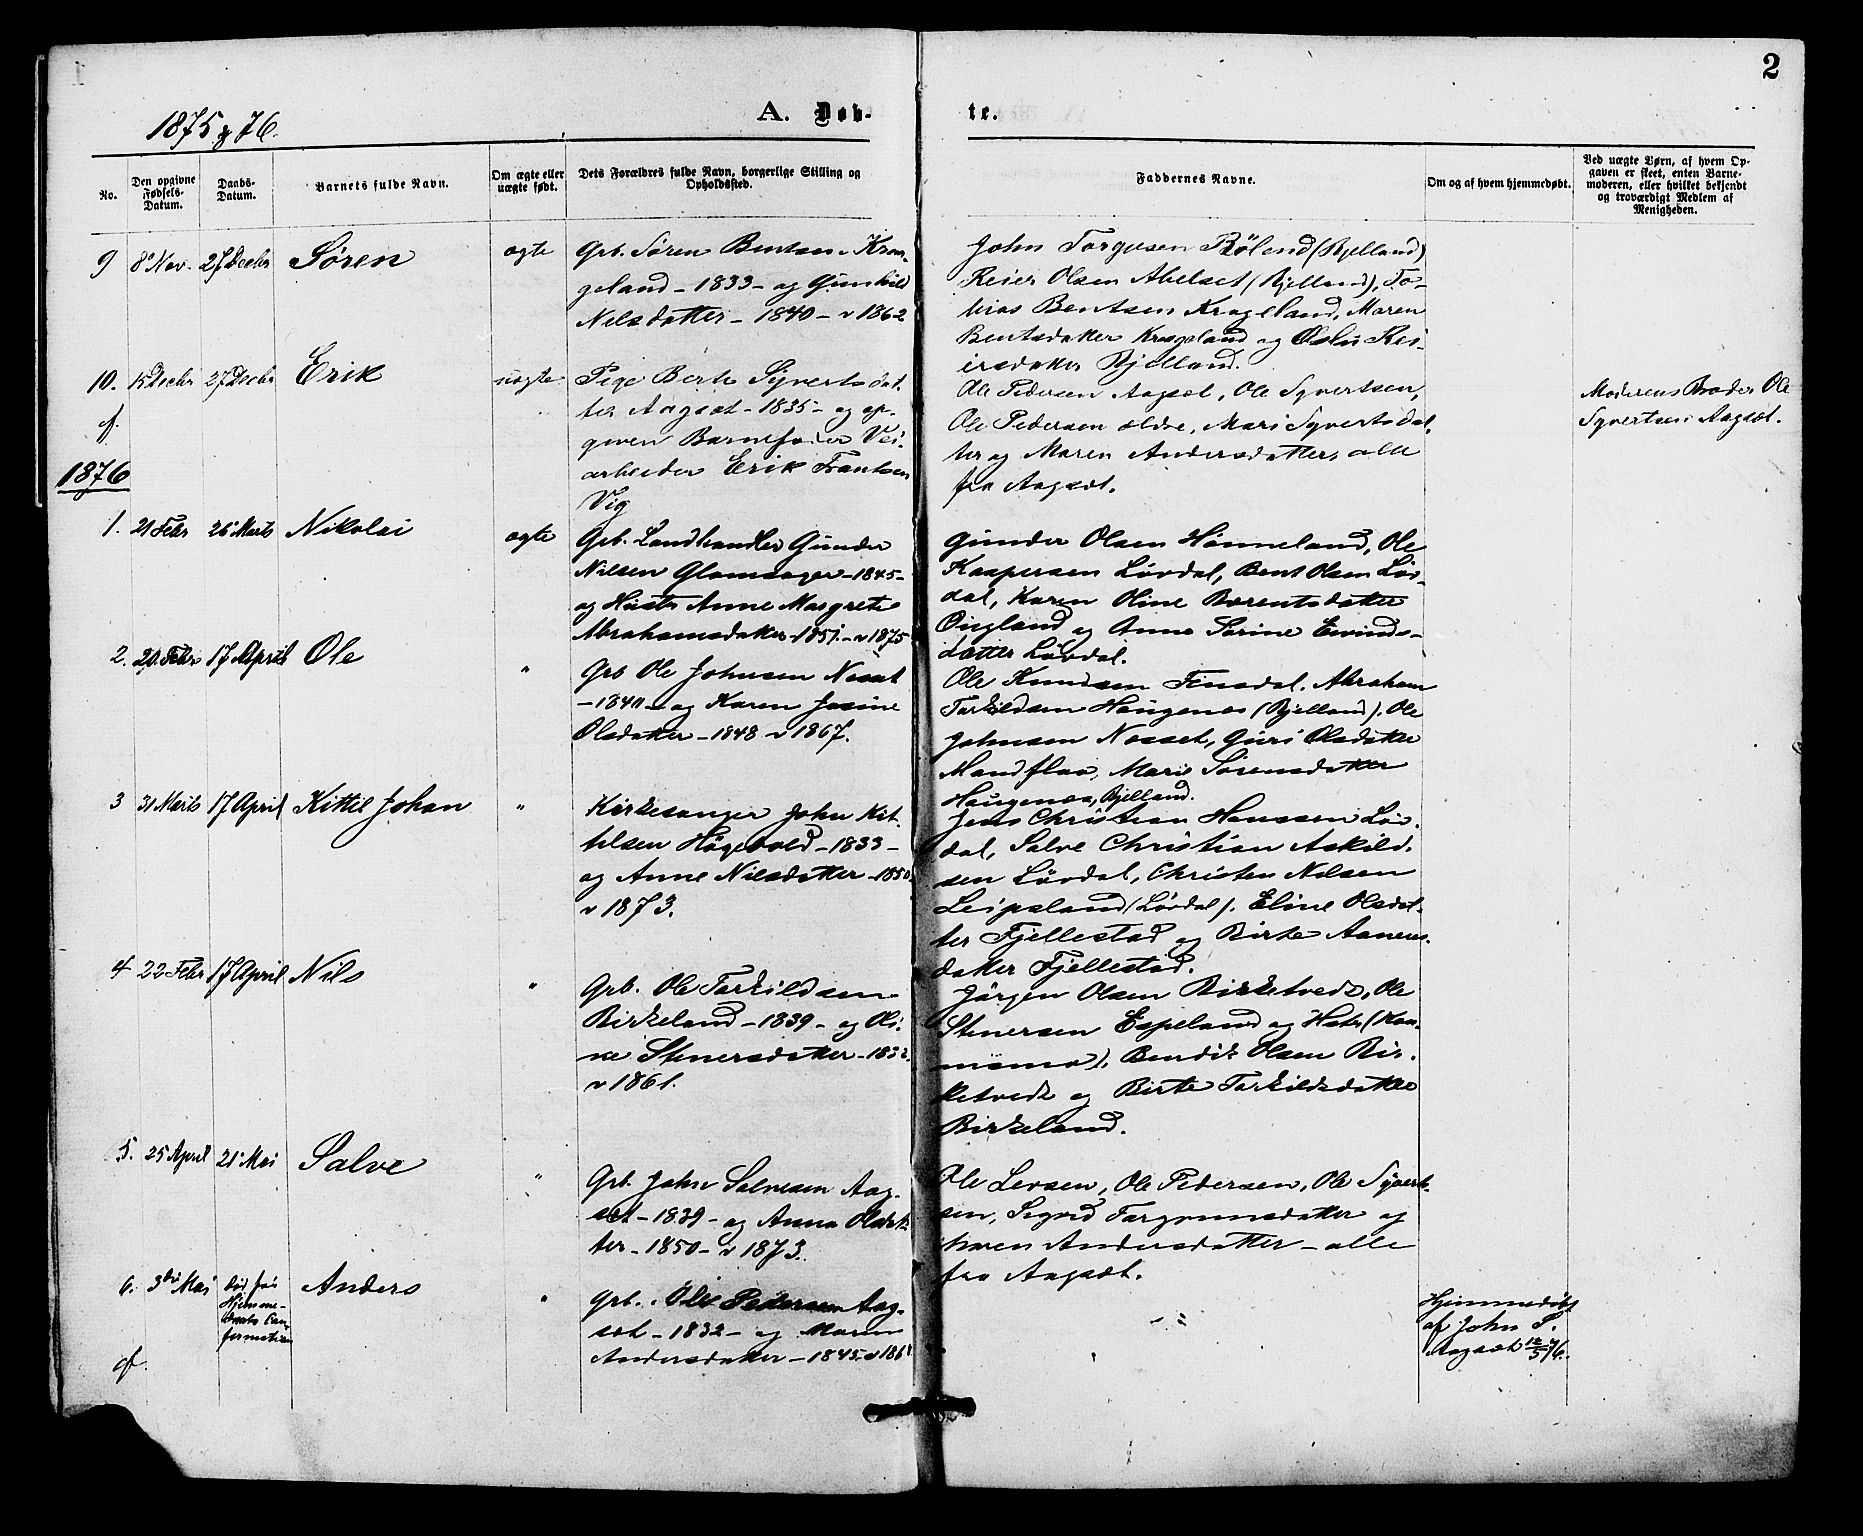 2
1875 & 76.
A. Døb-
te.
No.
Den opgivne Fødsels-Datum.
Daabs-Datum.
Barnets fulde Navn.
Om ægte eller uægte født.
Dets Forældres fulde Navn, borgerlige Stilling og Opholdssted.
Faddernes Navne.
Om og af hvem hjemmedøbt.
Ved uægte Børn, af hvem Op-
gaven er skeet, enten Barne-
moderen, eller hvilket bekjendt
og troværdigt Medlem af
Menigheden.
9 8 Nov. 27 Decbr Søren ægte
Grb. Søren Bentsen Kra-
geland - 1833 - og Gunhild
Nilsdatter - 1840 - v 1862
John Torgusen Røland (Bjelland)
Reier Olsen Abelset (Bjelland), To-
bias Bentsen Krageland, Maren
Bentsdatter Krageland og Rei-
ersdatter Bjelland.
10. 15 Decbr 27 Decbr Erik uægte
Pige Berte Syverts dat-
ter Aagsæt - 1835 - og op-
given Barnefader Vei-
arbeider Erik Frantsen
Vig
Ole Pedersen Aagsæt, Ole Syvertsen,
Ole Pedersen ældre, Mari Syvertsdat-
ter og Maren Andersdatter, alle
fra Aagsæt.
Moderens Broder Ole
Syvertsen Aagsæt.
1876
1. 21 Febr 26 Marts Nikolai ægte
Grb. Landhandler Gunder
Nilsen Glomsager - 1845 -
og Hustr Anne Margrete
Abrahamsdatter - 1851. - v 1875
Gunder Olsen Hønneland, Ole
Kaspersen Løvdal, Bent Olsen Løv-
dal, Karen Oline Berentsdatter
Øigland og Anne Sørine Eivinds-
datter Løvdal.
2. 20. Febr 17 April Ole "
Grb Ole Johnsen Nosset
- 1840 - og Karen Josine
Olsdatter - 1848 v 1867.
Ole Knudsen Finsdal, Abraham
Tarkildsen Haugenes (Bjelland). Ole
Johnsen Nosset, Guri Olsdatter
Mandflaa, Marie Sørensdatter
Haugenes, Bjelland.
3 31 Marts 17 April Kittil Johan "
Kirkesanger John Kit-
tilsen Høgevold - 1833 -
og Anne Nilsdatter - 1850
v 1873.
Jens Christian Hanssen Løv-
dal, Salve Christian Askild-
sen Løvdal, Christen Nilsen
Leipsland (Løvdal). Eline Olsdat-
ter Fjellestad og Birte Aanens-
datter Fjellestad.
4 22 Febr 17 April Nils "
Grb. Ole Tarkildsen
Birkeland - 1839 - og Oli-
ne Stenersdatter - 1832
v 1861.
Jørgen Olsen Birketvedt, Ole
Stenersen Espeland og Hstr (Kon-
nismo). Bendik Olsen Bir-
ketvedt og Birte Tarkildsdatter
Birkeland.
5. 25 April 21 Mai Salve "
Grb. John Salvesen Aag-
sæt - 1839 - og Anna Olsdat-
ter - 1850 - v 1873.
Ole Levsen, Ole Pedersen, Ole Syvert-
sen, Sigrid Torgrimsdatter og
Maren Andersdatter - alle
fra Aagsæt.
6. 3die Mai død før
Hjemme-
daabs Con-
formation
Anders "
Grb. Ole Pedersen Aag-
sæt - 1832 - og Maren
Andersdatter - 1845. v 186
Hjemmedøbt
af John S.
Aagsæt 12/5 76.